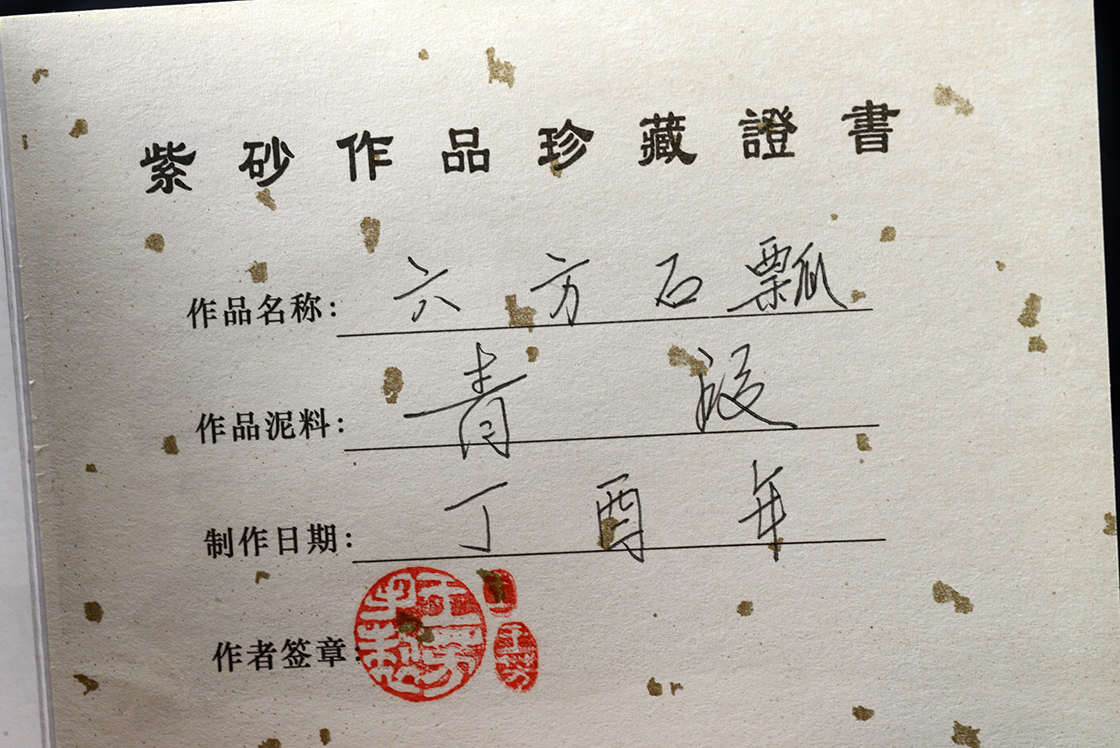 紫砂作品珍藏證書
作品名称：六方石瓢
作品泥料：青段
制作日期：丁酉年
作者签章：